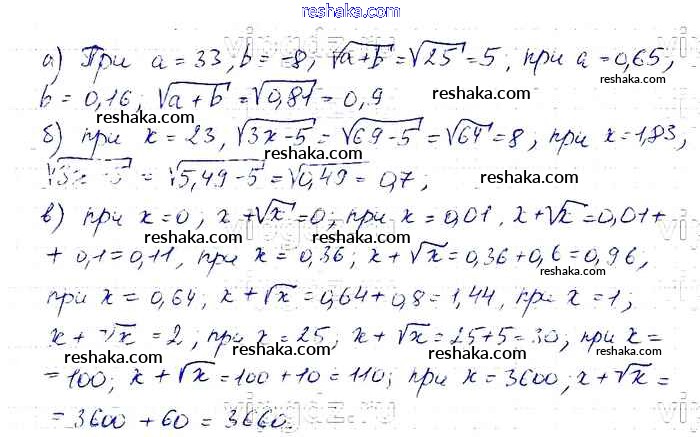 reshaka.com
а) При a = 33, b = -8, √a+b = √25 = 5, при a = 0,65,
b = 0,16; √a+b = √0,81 = 0,9
б) при x = 23, √3x-5 = √69-5 = √64 = 8, при x = 1,83,
√3x-5 = √5,49-5 = √0,49 = 0,7;
в) при x = 0, x + √x = 0; при x = 0,01, x + √x = 0,01 +
+ 0,1 = 0,11, при x = 0,36; x + √x = 0,36 + 0,6 = 0,96,
при x = 0,64, x + √x = 0,64 + 0,8 = 1,44, при x = 1;
x + √x = 2, при x = 25, x + √x = 25 + 5 = 30, при x =
= 100; x + √x = 100 + 10 = 110; при x = 3600, x + √x =
= 3600 + 60 = 3660.
reshaka.com
reshaka.com
reshaka.com
reshaka.com
reshaka.com
reshaka.com
reshaka.com
reshaka.com
reshaka.com
reshaka.com
reshaka.com